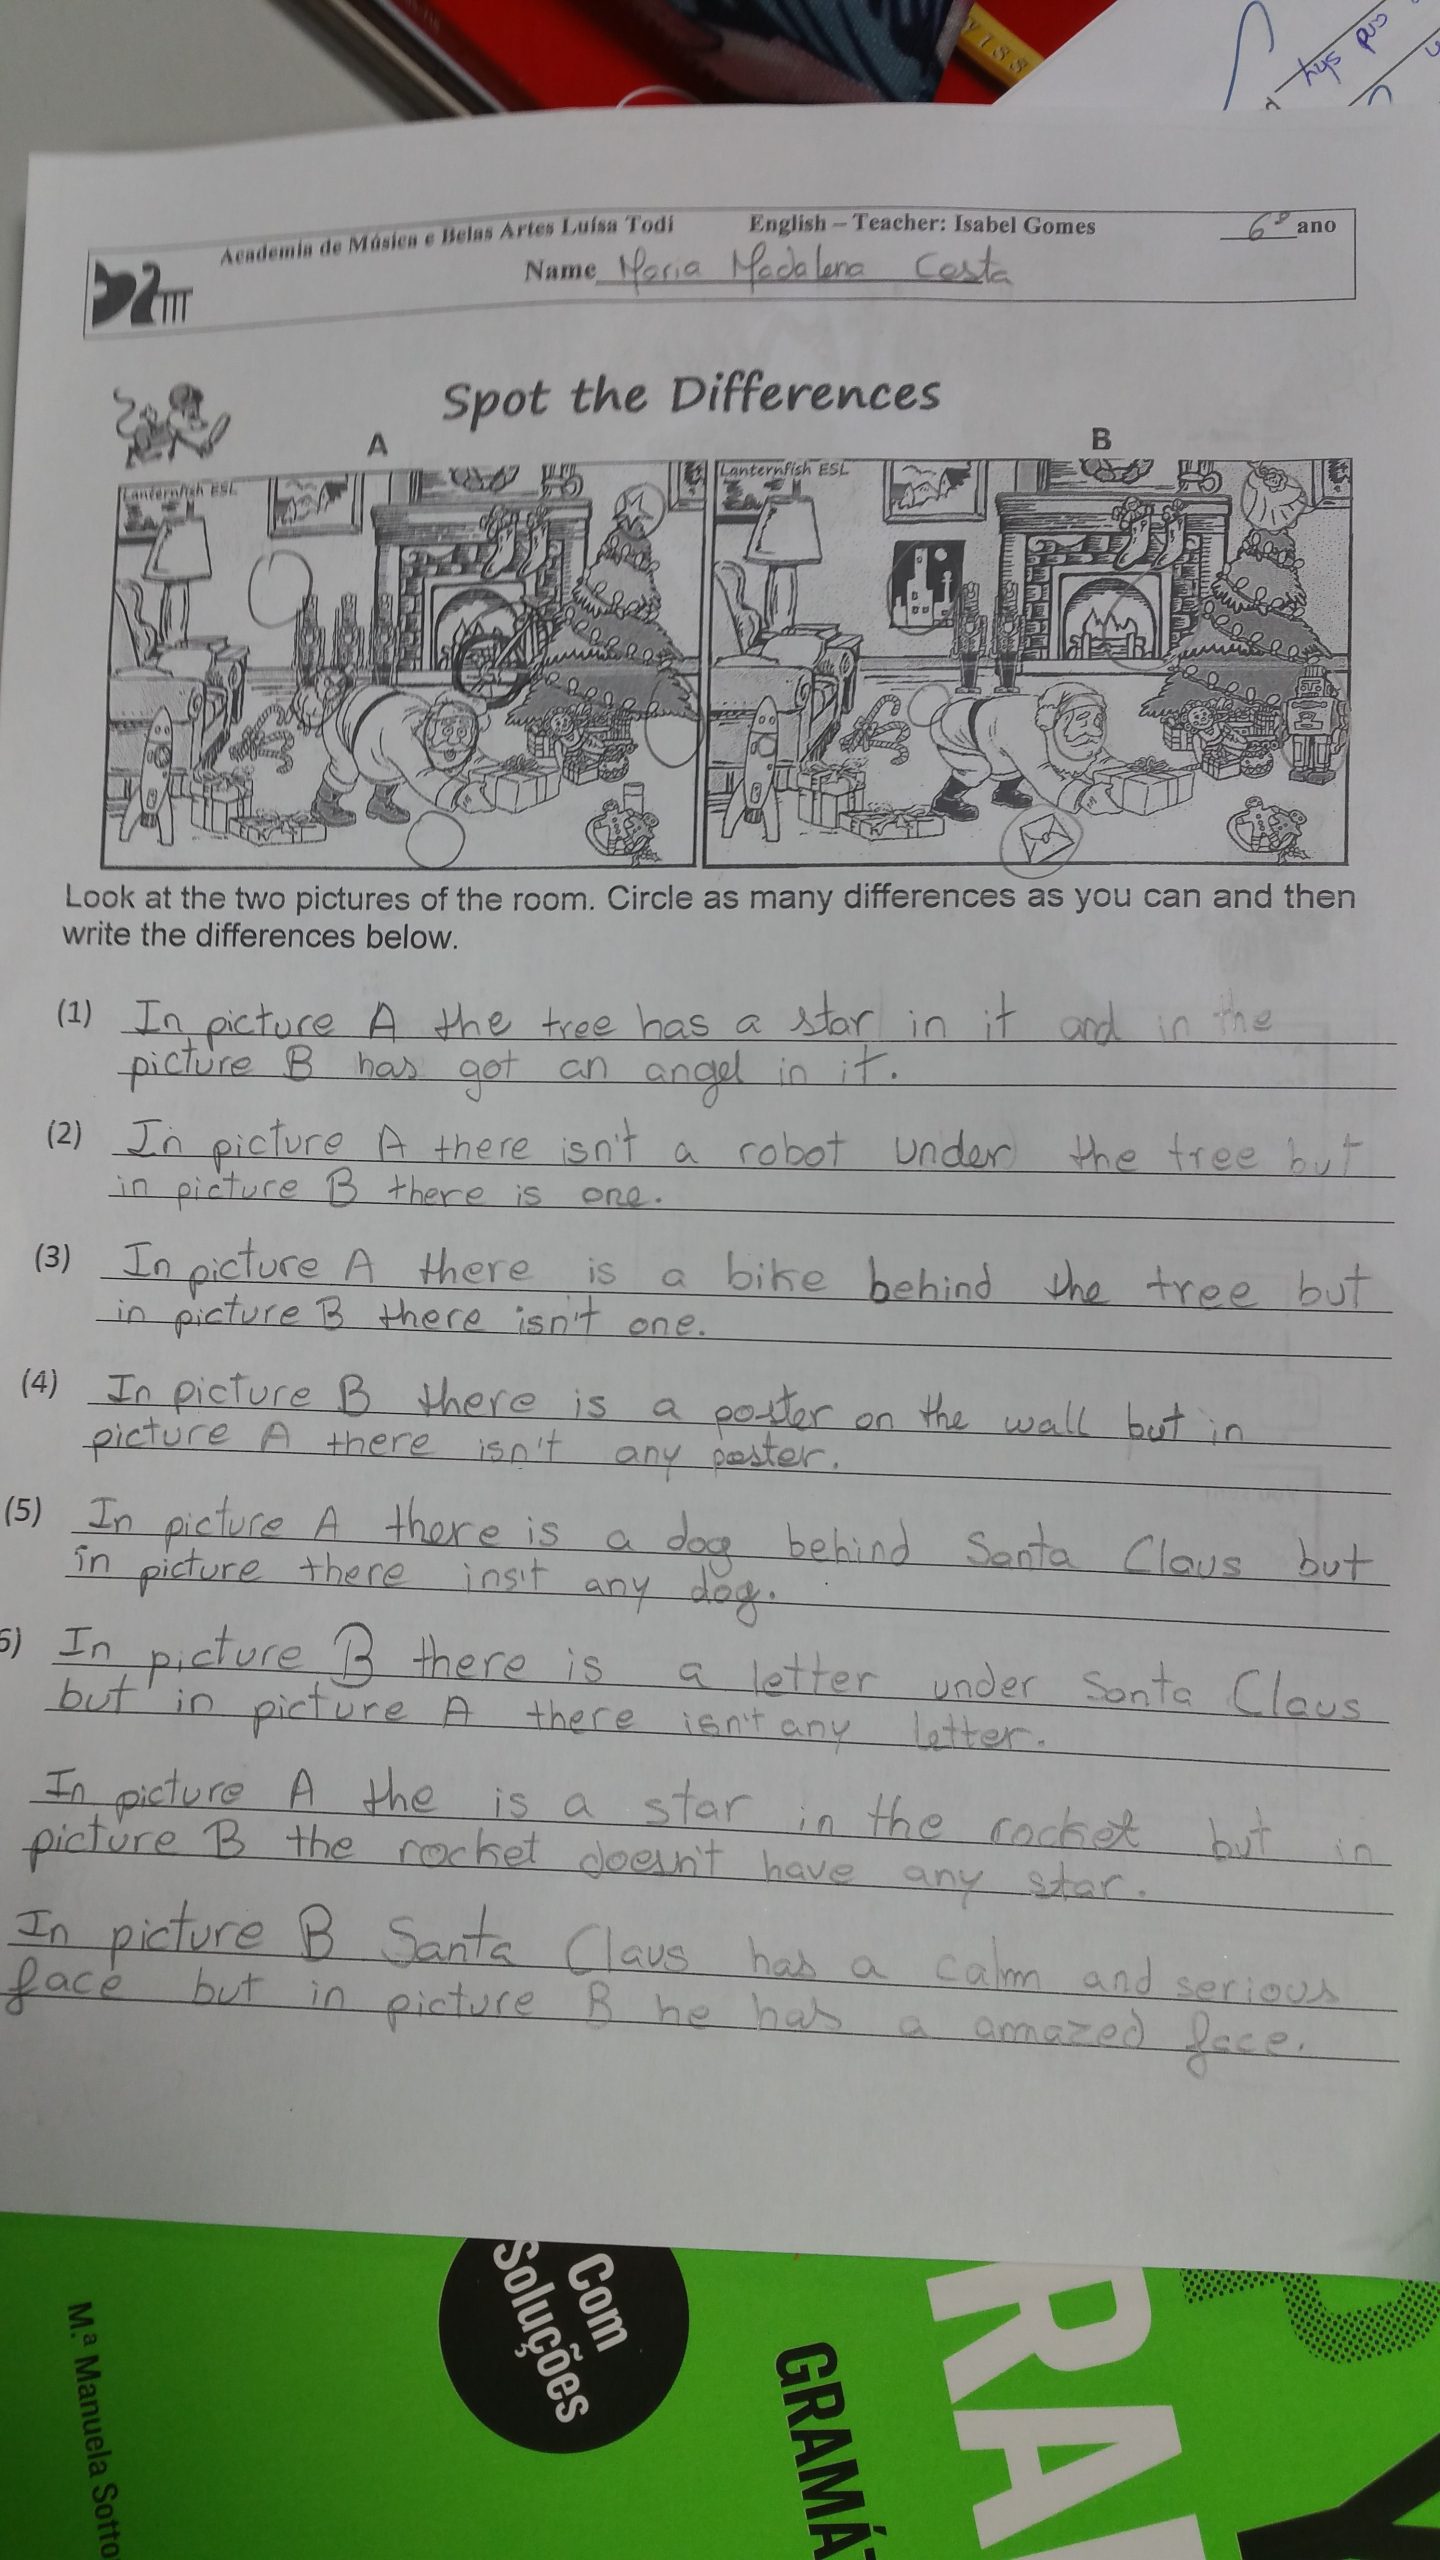 VISS
hys pus
Academia de Música e Belas Artes Luísa Todi English – Teacher: Isabel Gomes 6º ano
Name Maria Madalena Costa
Spot the Differences
A B
Lanternfish ESL Lanternfish ESL
Look at the two pictures of the room. Circle as many differences as you can and then
write the differences below.
(1) In picture A the tree has a star in it and in the
picture B has got an angel in it.
(2) In picture A there isn't a robot under the tree but
in picture B there is one.
(3) In picture A there is a bike behind the tree but
in picture B there isn't one.
(4) In picture B there is a poster on the wall but in
picture A there isn't any poster.
(5) In picture A there is a dog behind Santa Claus but
in picture there ins't any dog.
6) In picture B there is a letter under Santa Claus
but in picture A there isn't any letter.
In picture A the is a star in the rocket but in
picture B the rocket doesn't have any star.
In picture B Santa Claus has a calm and serious
face but in picture B he has a amazed face.
Com
Soluções
M.ª Manuela Sotto
GRAMÁ
RA